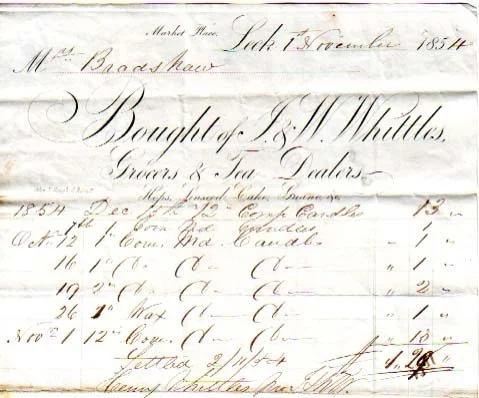 Market Place, Leek 1st November 1854
Mrs Bradshaw
Bought of J. & W. Whittles,
Grocers & Tea Dealers
Hops, Linseed Cake, Guano &c.
1854 Dec 12 Comp Candles 13 "
7th 1 Com Md Candles 1 "
Octr 12 1" Com. Md Candls " 1 "
16 1" Do Do Do " 1 "
19 2" Do Do Do " 2 "
26 1" Wax Do Do " 1 "
Novr 1 12" Com. Do Do " 13 "
Settled 2/11/54
Henry Whittles